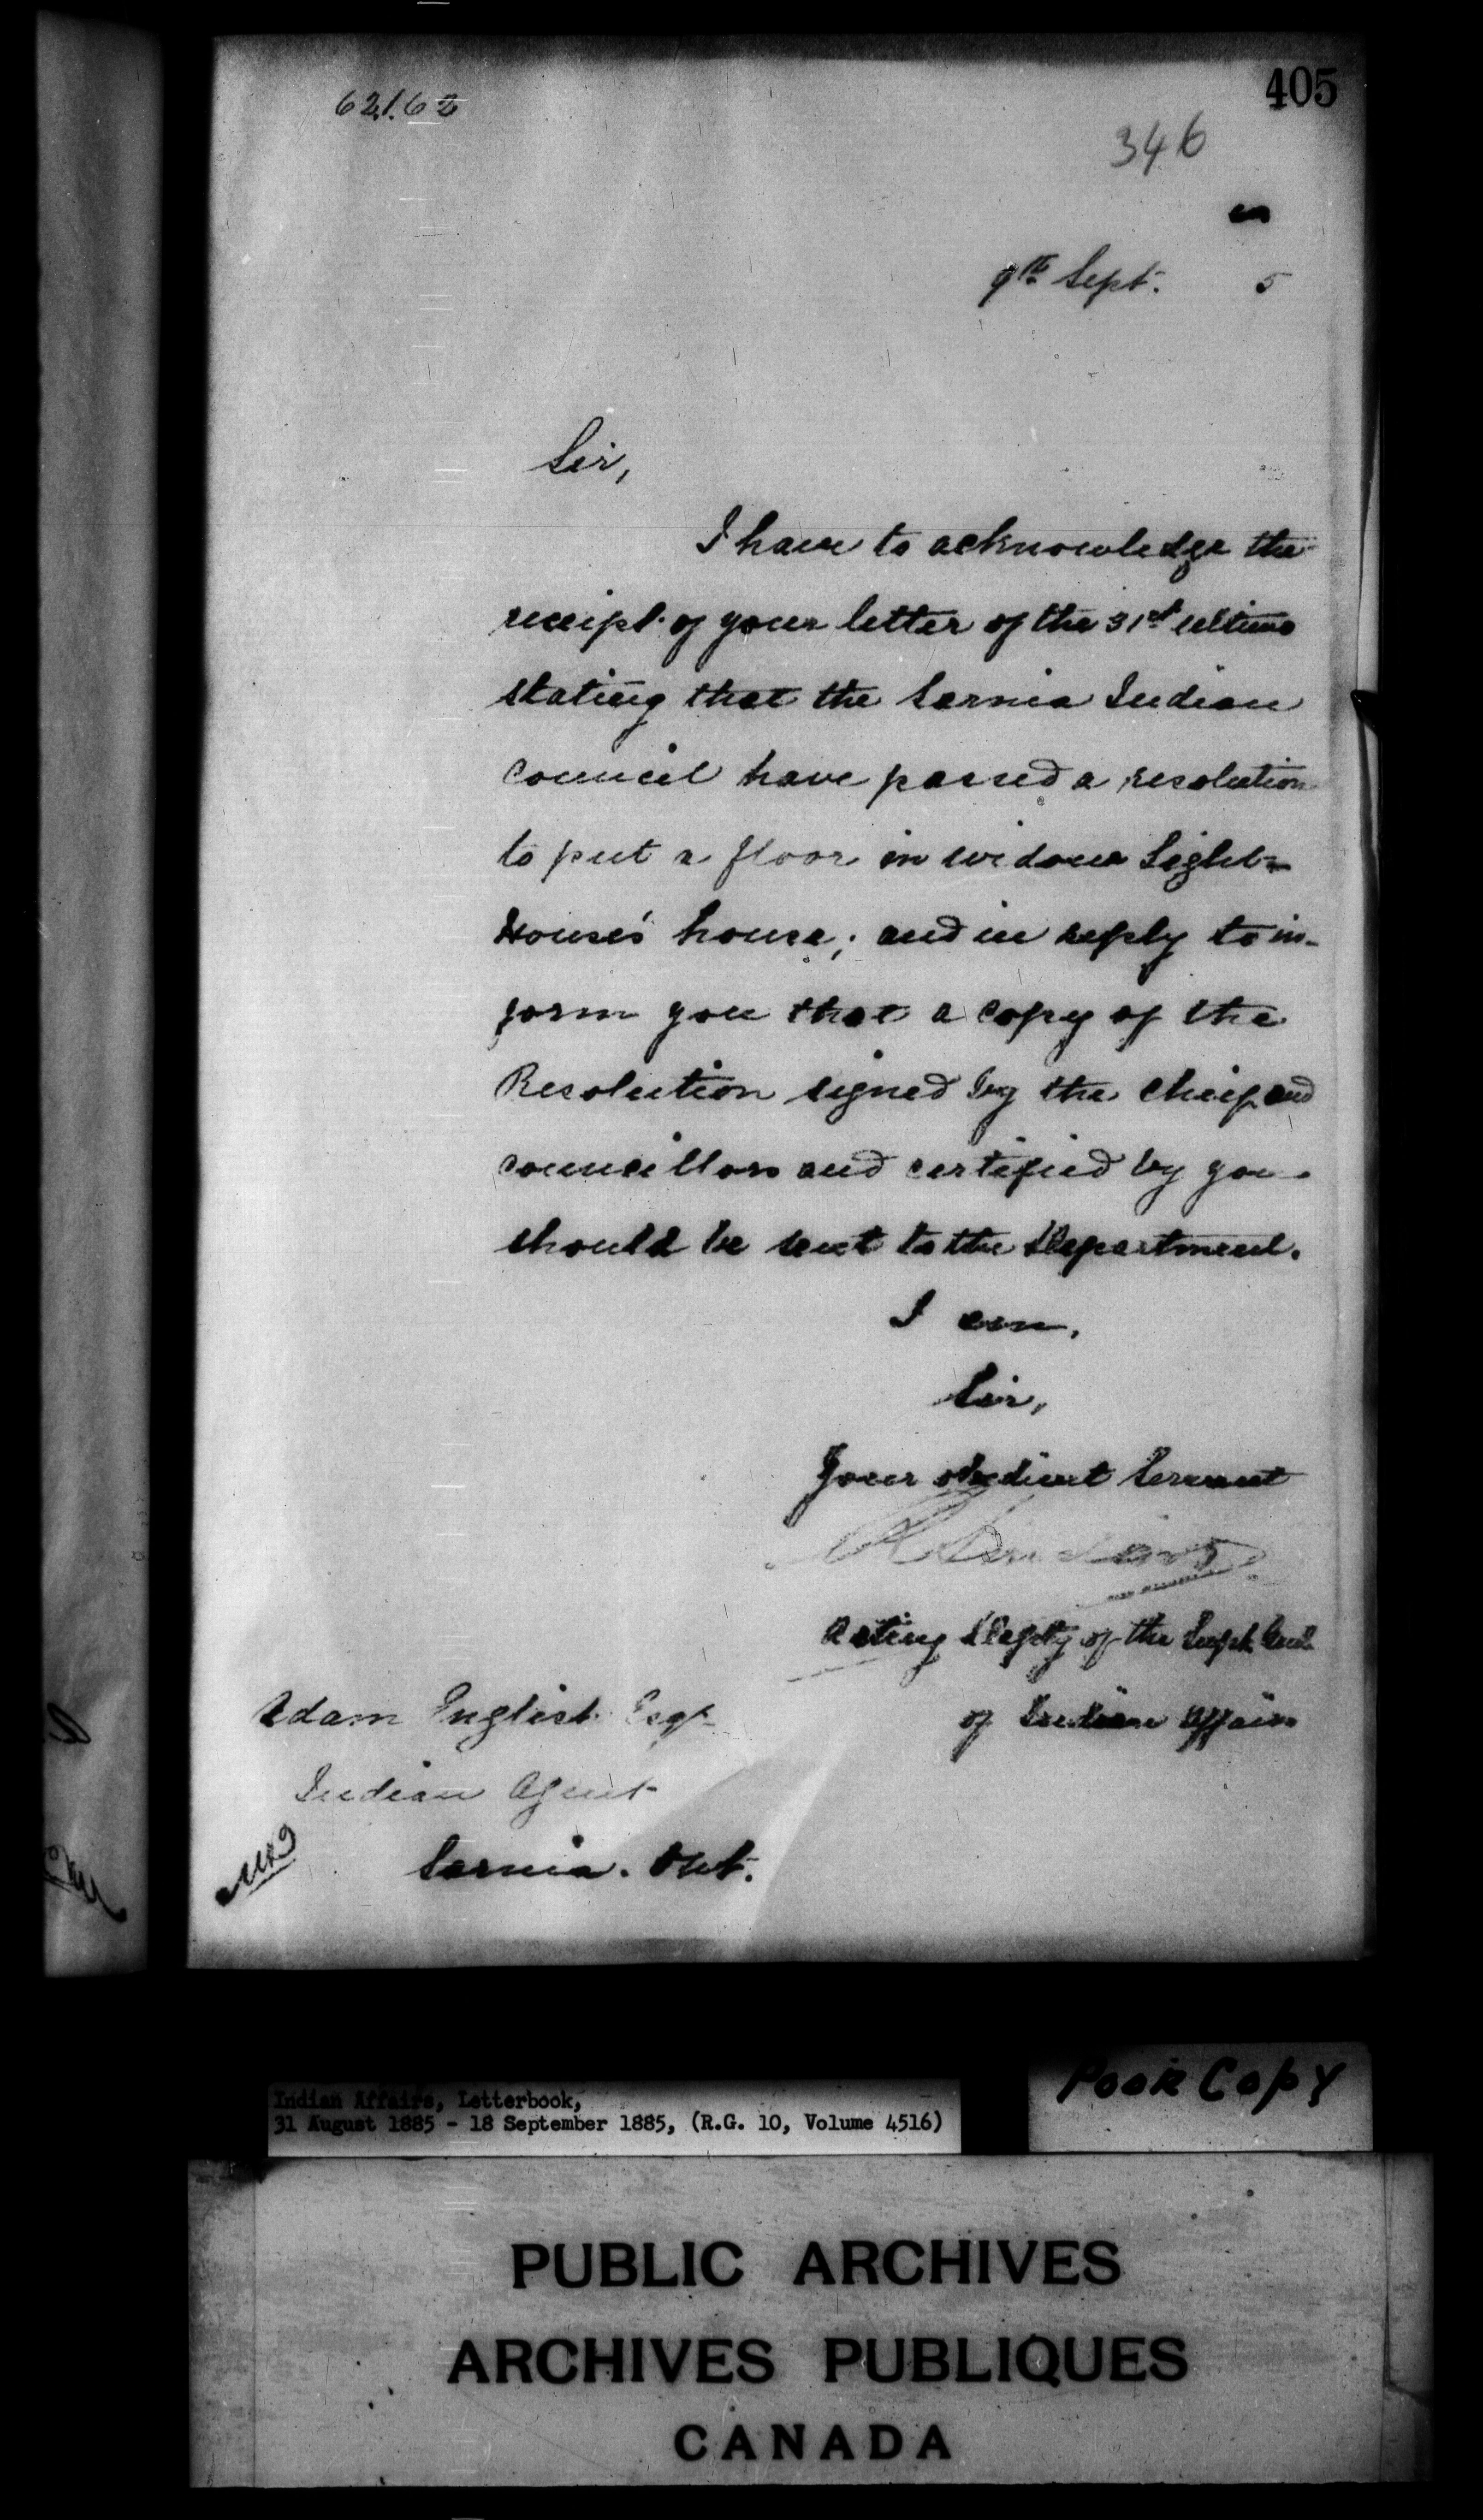 405
62162
346
9th Sept. 5
Sir,
I have to acknowledge the
receipt of your letter of the 31st ultimo
stating that the Sarnia Indian
Council have passed a resolution
to put a floor in widow Light-
House's house; and in reply to in-
form you that a copy of the
Resolution signed by the Chief and
councillors and certified by you
should be sent to the Department.
I am,
Sir,
Your obedient Servant
Acting Depty of the Supt. Genl.
of Indian Affairs
Adam English Esqr
Indian Agent
Sarnia. Ont.
Indian Affairs, Letterbook,
31 August 1885 - 18 September 1885, (R.G. 10, Volume 4516)
Poor Copy
PUBLIC ARCHIVES
ARCHIVES PUBLIQUES
CANADA